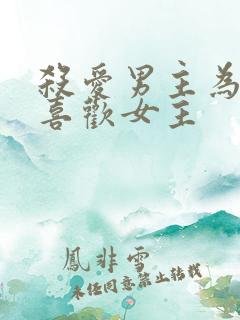 殺愛男主為
喜歡女主
鳳非雪
未經同意禁止轉載